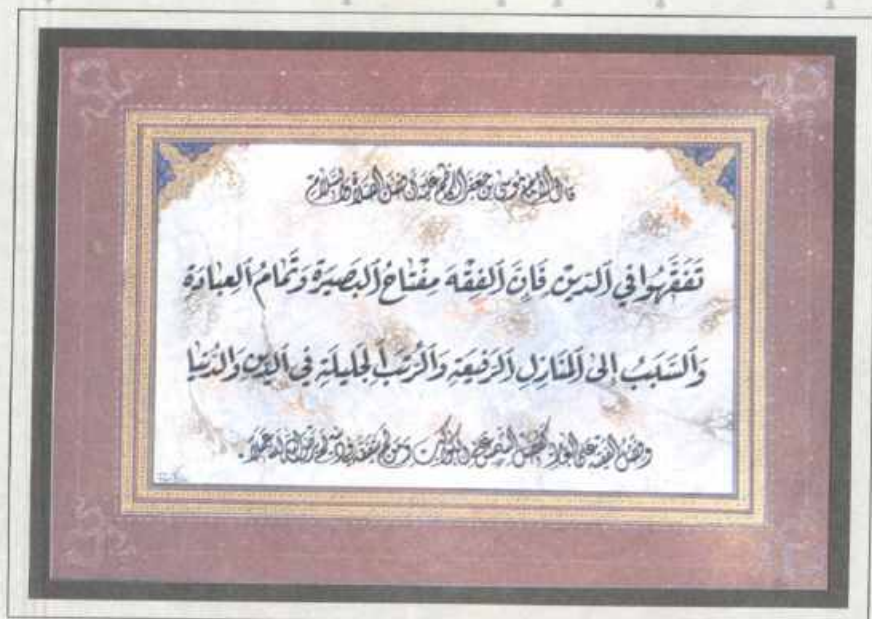 قال الإمام موسى بن جعفر الكاظم عليه أفضل الصلاة والسلام
تَفَقَّهُوا في ٱلدّينِ فَإِنَّ ٱلفِقْهَ مِفْتاحُ ٱلبَصيرَةِ وَتَمامُ ٱلعِبادَةِ
وَٱلسَّبَبُ إِلىٰ ٱلمَنازِلِ ٱلرَفيعَةِ وَٱلرُتَبِ ٱلجَليلَةِ في ٱلدّينِ وَالدُنيا
وفضل الفقيه على العابد كفضل الشمس على الكواكب ومن لم يتفقه في دينه لم يرض الله له عملاً.